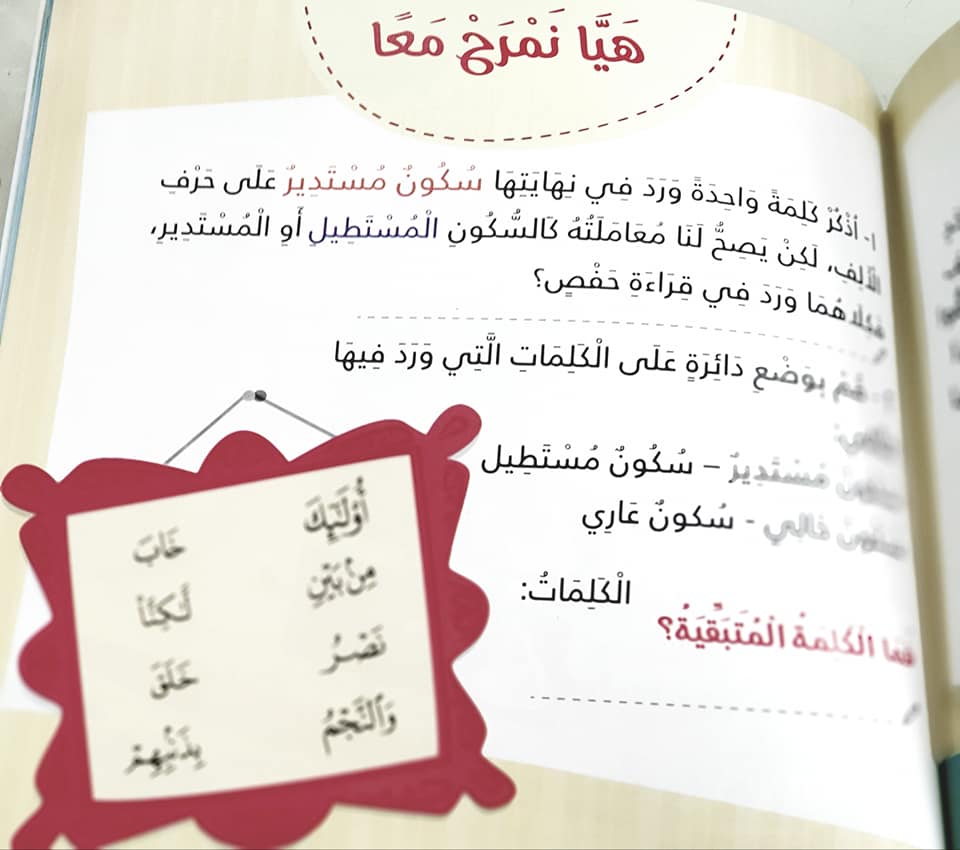 هَيَّا نَمْرَحْ مَعًا
١- أَذْكُرُ كَلِمَةً وَاحِدَةً وَرَدَ فِي نِهَايَتِهَا سُكُونٌ مُسْتَدِيرٌ عَلَى حَرْفِ
الْأَلِفِ، لَكِنْ يَصِحُّ لَنَا مُعَامَلَتُهُ كَالسُّكُونِ الْمُسْتَطِيلِ أَوِ الْمُسْتَدِيرِ،
فَكِلَاهُمَا وَرَدَ فِي قِرَاءَةِ حَفْصٍ؟
قُمْ بِوَضْعِ دَائِرَةٍ عَلَى الْكَلِمَاتِ الَّتِي وَرَدَ فِيهَا
مُسْتَدِيرٌ – سُكُونٌ مُسْتَطِيل
سُكُونٌ خَالِي - سُكونٌ عَارِي
الْكَلِمَاتُ:
فَمَا الْكَلِمَةُ الْمُتَبَقِّيَةُ؟
أُوْلَٰٓئِكَ خَابَ
مِنۢ بَيْنِ لَّٰكِنَّا۠
نَصْرُ خَلَقَ
وَٱلنَّجْمُ بِذَنۢبِهِمْ